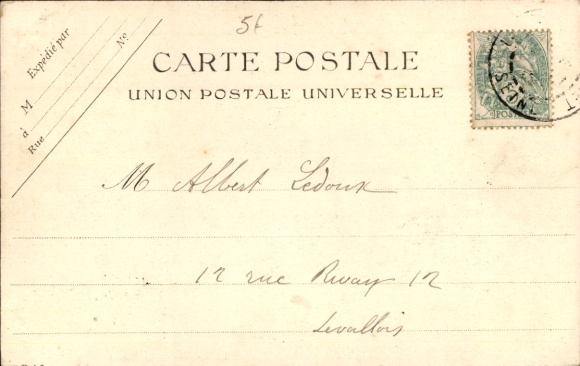 5f
Expédié par
M
à
Rue
N°
CARTE POSTALE
UNION POSTALE UNIVERSELLE
POSTE
SEINE
M Albert Ledoux
12 rue Rivay 12
Levallois